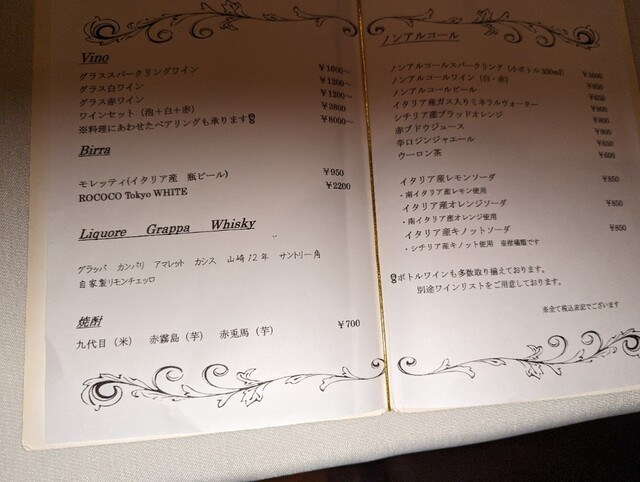 Vino
グラススパークリングワイン ￥1600～
グラス白ワイン ￥1200～
グラス赤ワイン ￥1200～
ワインセット（泡＋白＋赤） ￥3800
※料理にあわせたペアリングも承ります ￥8000～
Birra
モレッティ(イタリア産 瓶ビール) ￥950
ROCOCO Tokyo WHITE ￥2200
Liquore Grappa Whisky
グラッパ カンパリ アマレット カシス 山崎12年 サントリー角
自家製リモンチェッロ
焼酎
九代目（米） 赤霧島（芋） 赤兎馬（芋） ￥700
ノンアルコール
ノンアルコールスパークリング（小ボトル
ノンアルコールワイン（白・赤）
ノンアルコールビール
イタリア産ガス入りミネラルウォーター
シチリア産ブラッドオレンジ
赤ブドウジュース
辛口ジンジャエール
ウーロン茶
イタリア産レモンソーダ ￥850
・南イタリア産レモン使用
イタリア産オレンジソーダ ￥850
・南イタリア産オレンジ使用
イタリア産キノットソーダ ￥850
・シチリア産キノット使用 ※柑橘類です
ボトルワインも多数取り揃えております。
別途ワインリストをご用意しております。
※全て税込表記でございます